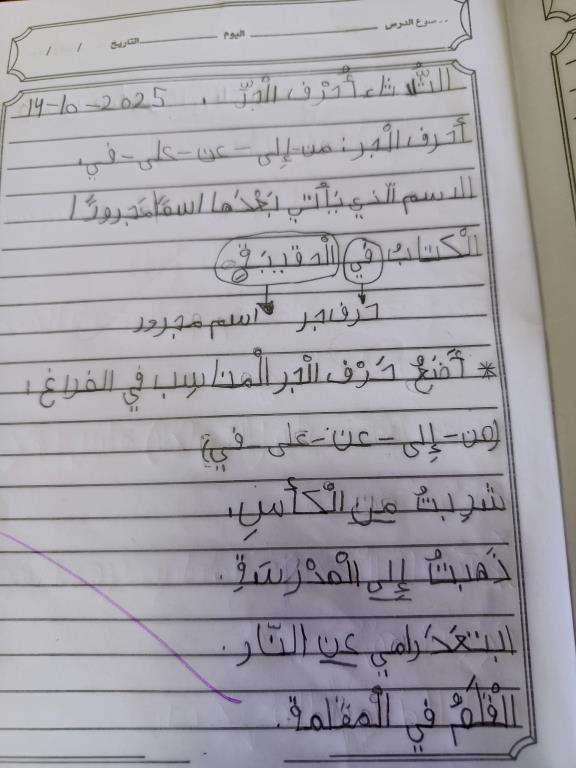 موضوع الدرس اليوم التاريخ / /
الثلاثاء أَحْرُف الْجَرِّ . 14-10-2025
أحرف الجر : من - إلى - عن - على - في .
الاسم الذي يأتي بَعْدَها اسمًا مَجرورًا
الْكتابُ في الْحقيبةِ
حرف جر اسم مجرور
* أَضَعُ حَرْف الْجر الْمناسِب في الفراغ :
( من - إلى - عن - على - في )
شَرِبتُ من الْكأسِ .
ذَهبتُ إلى الْمَدْرَسَةِ .
ابتَعَدَ رامي عن النَّار .
الْقَلَمُ في الْمقلمة .